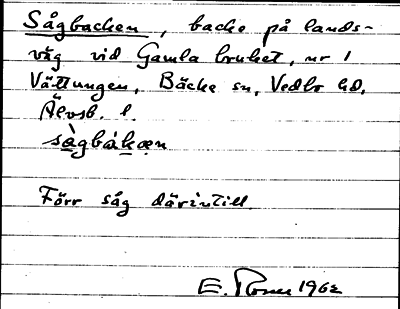 Sågbacken, backe på lands-
väg vid Gamla bruket, nr 1
Vättungen, Bäcke sn, Vedbo hd,
Älvsb. l.
sågbàkæn
Förr såg därintill.
E. 1962